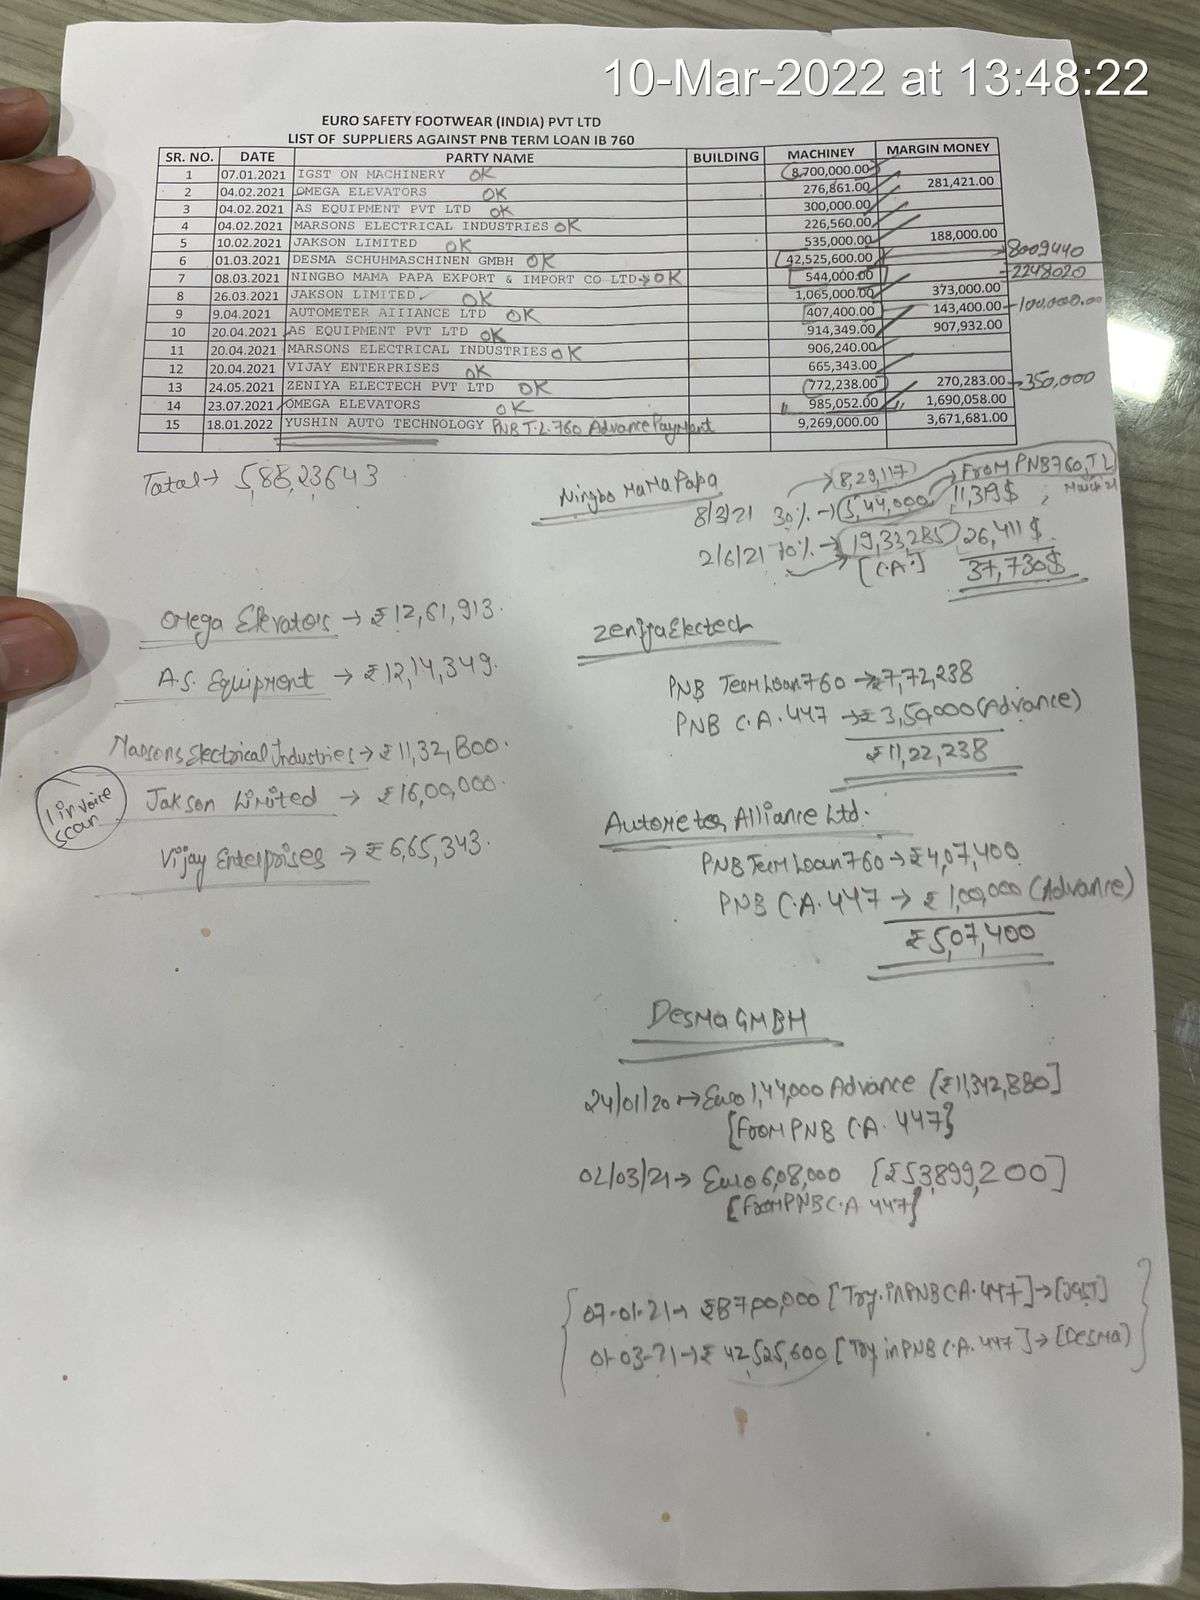 10-Mar-2022 at 13:48:22
EURO SAFETY FOOTWEAR (INDIA) PVT LTD
LIST OF SUPPLIERS AGAINST PNB TERM LOAN IB 760
SR. NO. DATE PARTY NAME BUILDING MACHINEY MARGIN MONEY
1 07.01.2021 IGST ON MACHINERY OK 8,700,000.00
2 04.02.2021 OMEGA ELEVATORS OK 276,861.00 281,421.00
3 04.02.2021 AS EQUIPMENT PVT LTD OK 300,000.00
4 04.02.2021 MARSONS ELECTRICAL INDUSTRIES OK 226,560.00
5 10.02.2021 JAKSON LIMITED OK 535,000.00 188,000.00
6 01.03.2021 DESMA SCHUHMASCHINEN GMBH OK 42,525,600.00 8009440
7 08.03.2021 NINGBO MAMA PAPA EXPORT & IMPORT CO LTD → OK 544,000.00 2248020
8 26.03.2021 JAKSON LIMITED OK 1,065,000.00 373,000.00
9 9.04.2021 AUTOMETER AIIIANCE LTD OK 407,400.00 143,400.00 -100,000.00
10 20.04.2021 AS EQUIPMENT PVT LTD OK 914,349.00 907,932.00
11 20.04.2021 MARSONS ELECTRICAL INDUSTRIES OK 906,240.00
12 20.04.2021 VIJAY ENTERPRISES OK 665,343.00
13 24.05.2021 ZENIYA ELECTECH PVT LTD OK 772,238.00 270,283.00 → 350,000
14 23.07.2021 OMEGA ELEVATORS OK 985,052.00 1,690,058.00
15 18.01.2022 YUSHIN AUTO TECHNOLOGY PNB T.L.760 Advance Payment 9,269,000.00 3,671,681.00
Total → 5,88,23643
Ningbo MaMa Papa
→ 8,29,117
8/3/21 30% → 5,44,000 11,319$ From PNB760,T.L March 21
2/6/21 70% → 19,33,285 26,411$
[C.A.] 37,730$
Omega Elevators → ₹12,61,913.
A.S. Equipment → ₹12,14,349.
Marsons Electrical Industries → ₹11,32,800.
1 invoice scan
Jakson Limited → ₹16,00,000.
Vijay Enterprises → ₹6,65,343.
Zeniya Electech
PNB Term Loan 760 → ₹7,72,238
PNB C.A. 447 → ₹3,50,000 (Advance)
₹11,22,238
Autometer Alliance Ltd.
PNB Term Loan 760 → ₹4,07,400
PNB C.A. 447 → ₹1,00,000 (Advance)
₹5,07,400
Desma GMBH
24/01/20 → Euro 1,44,000 Advance [₹11,342,880]
[From PNB C.A. 447]
02/03/21 → Euro 6,08,000 [₹53,899,200]
[From PNB C.A 447]
07-01-21 → ₹8700,000 [Try. in PNB C.A. 447] → [IGST]
01-03-21 → ₹42,525,600 [Try in PNB C.A. 447] → [Desma]